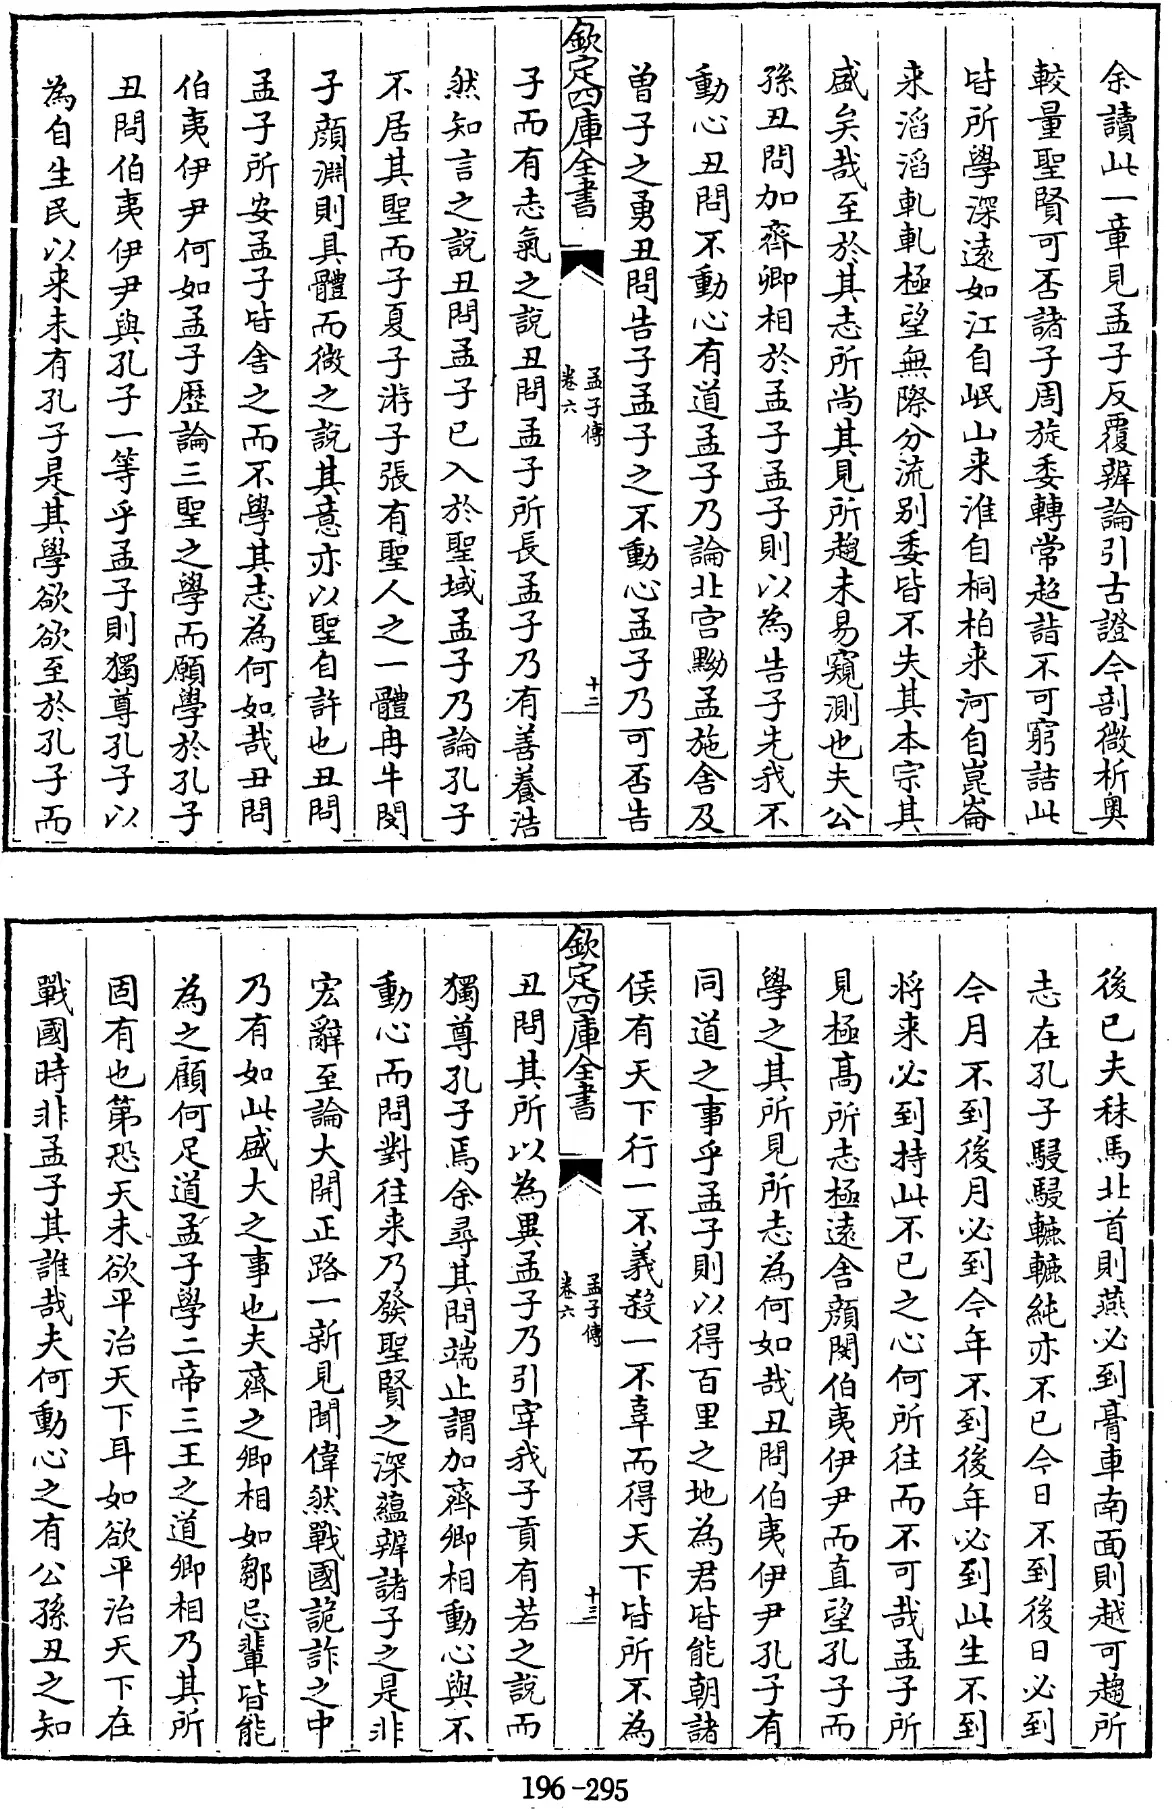 余讀此一章見孟子反覆辨論引古證今剖微析奥
較量聖賢可否諸子周旋委轉常超詣不可窮詰此
皆所學深遠如江自岷山来淮自桐柏来河自崑崙
来滔滔軋軋極望無際分流别委皆不失其本宗其
盛矣哉至於其志所尚其見所趨未易窺測也夫公
孫丑問加齊卿相於孟子孟子則以為告子先我不
動心丑問不動心有道孟子乃論北宫黝孟施舍及
曽子之勇丑問告子孟子之不動心孟子乃可否告
欽定四庫全書
孟子傳
卷六
十二
子而有志氣之說丑問孟子所長孟子乃有善養浩
然知言之說丑問孟子已入於聖域孟子乃論孔子
不居其聖而子夏子游子張有聖人之一體冉牛閔
子顔淵則具體而微之說其意亦以聖自許也丑問
孟子所安孟子皆舍之而不學其志為何如哉丑問
伯夷伊尹何如孟子歷論三聖之學而願學於孔子
丑問伯夷伊尹與孔子一等乎孟子則獨尊孔子以
為自生民以来未有孔子是其學欲欲至於孔子而
後已夫秣馬北首則燕必到膏車南面則越可趨所
志在孔子駸駸轆轆純亦不已今日不到後日必到
今月不到後月必到今年不到後年必到此生不到
将来必到持此不已之心何所往而不可哉孟子所
見極髙所志極遠舍顔閔伯夷伊尹而直望孔子而
學之其所見所志為何如哉丑問伯夷伊尹孔子有
同道之事乎孟子則以得百里之地為君皆能朝諸
侯有天下行一不義殺一不辜而得天下皆所不為
欽定四庫全書
孟子傳
卷六
十三
丑問其所以為異孟子乃引宰我子貢有若之說而
獨尊孔子焉余尋其問端止謂加齊卿相動心與不
動心而問對往来乃發聖賢之深蘊辨諸子之是非
宏辭至論大開正路一新見聞偉然戰國詭詐之中
乃有如此盛大之事也夫齊之卿相如鄒忌輩皆能
為之顧何足道孟子學二帝三王之道卿相乃其所
固有也第恐天未欲平治天下耳如欲平治天下在
戰國時非孟子其誰哉夫何動心之有公孫丑之知
196-295